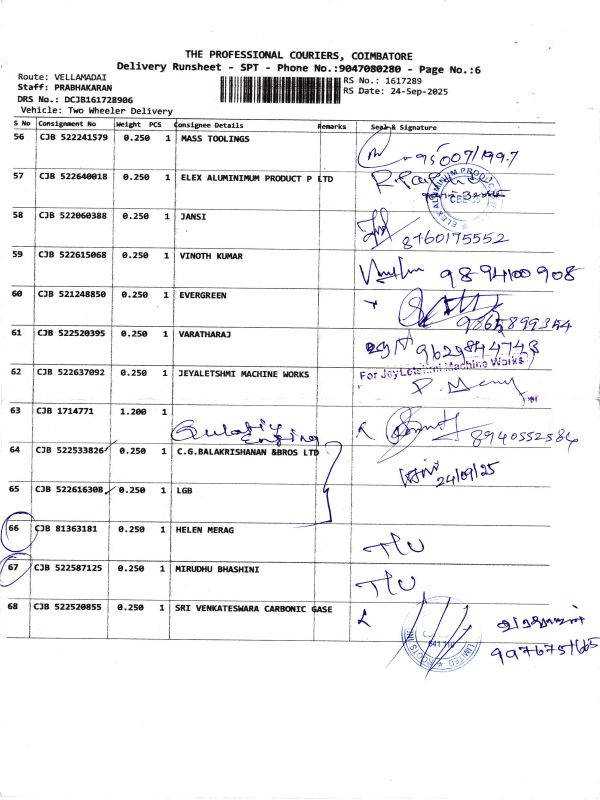 THE PROFESSIONAL COURIERS, COIMBATORE
Delivery Runsheet - SPT - Phone No.:9047080280 - Page No.:6
Route: VELLAMADAI
Staff: PRABHAKARAN
DRS No.: DCJB161728906
Vehicle: Two Wheeler Delivery
RS No.: 1617289
RS Date: 24-Sep-2025
S No Consignment No Weight PCS Consignee Details Remarks Seal & Signature
56 CJB 522241579 0.250 1 MASS TOOLINGS
57 CJB 522640018 0.250 1 ELEX ALUMINIMUM PRODUCT P LTD
58 CJB 522060388 0.250 1 JANSI 8760175552
59 CJB 522615068 0.250 1 VINOTH KUMAR 9894100908
60 CJB 521248850 0.250 1 EVERGREEN 9865899354
61 CJB 522520395 0.250 1 VARATHARAJ 9629844743
62 CJB 522637092 0.250 1 JEYALETSHMI MACHINE WORKS For JeyLetshmi Machine Works
63 CJB 1714771 1.200 1 8940552584
64 CJB 522533826 0.250 1 C.G.BALAKRISHANAN &BROS LTD 24/09/25
65 CJB 522616308 0.250 1 LGB
66 CJB 81363181 0.250 1 HELEN MERAG
67 CJB 522587125 0.250 1 MIRUDHU BHASHINI
68 CJB 522520855 0.250 1 SRI VENKATESWARA CARBONIC GASE